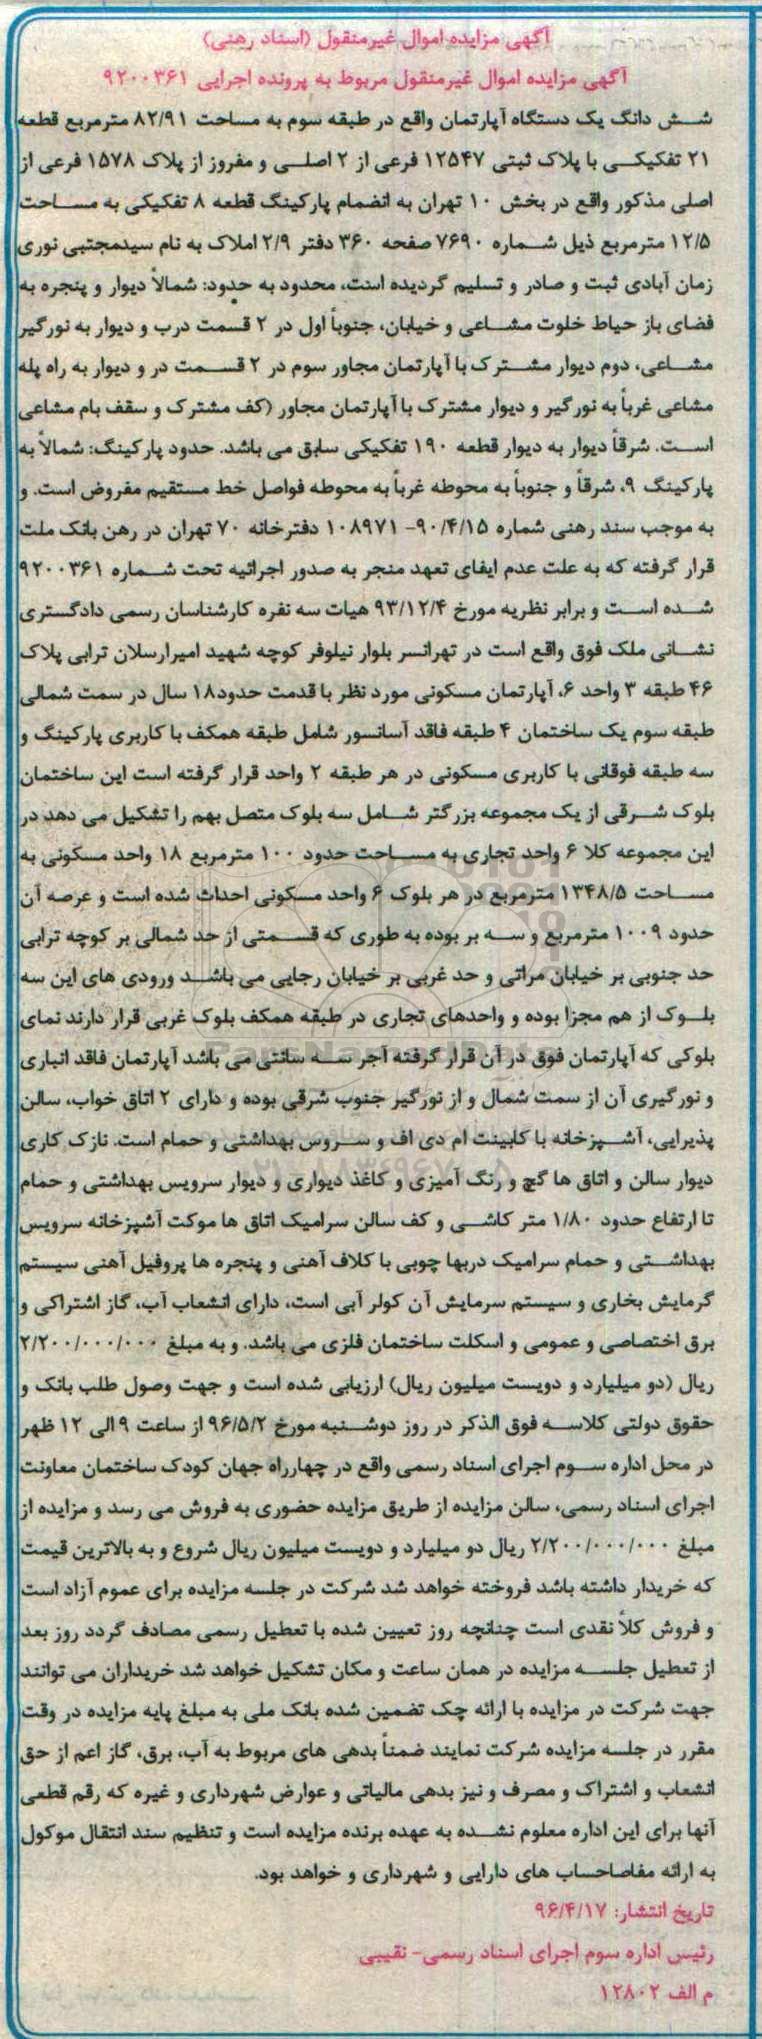 آگهی مزایده اموال غیرمنقول (اسناد رهنی)
آگهی مزایده اموال غیرمنقول مربوط به پرونده اجرایی ۹۲۰۰۳۶۱
شش دانگ یک دستگاه آپارتمان واقع در طبقه سوم به مساحت ۸۲/۹۱ مترمربع قطعه
۲۱ تفکیکی با پلاک ثبتی ۱۲۵۴۷ فرعی از ۲ اصلی و مفروز از پلاک ۱۵۷۸ فرعی از
اصلی مذکور واقع در بخش ۱۰ تهران به انضمام پارکینگ قطعه ۸ تفکیکی به مساحت
۱۲/۵ مترمربع ذیل شماره ۷۶۹۰ صفحه ۳۶۰ دفتر ۲/۹ املاک به نام سیدمجتبی نوری
زمان آبادی ثبت و صادر و تسلیم گردیده است، محدود به حدود: شمالاً دیوار و پنجره به
فضای باز حیاط خلوت مشاعی و خیابان، جنوباً اول در ۲ قسمت درب و دیوار به نورگیر
مشاعی، دوم دیوار مشترک با آپارتمان مجاور سوم در ۲ قسمت در و دیوار به راه پله
مشاعی غرباً به نورگیر و دیوار مشترک با آپارتمان مجاور (کف مشترک و سقف بام مشاعی
است. شرقاً دیوار به دیوار قطعه ۱۹۰ تفکیکی سابق می باشد. حدود پارکینگ: شمالاً به
پارکینگ ۹، شرقاً و جنوباً به محوطه غرباً به محوطه فواصل خط مستقیم مفروض است. و
به موجب سند رهنی شماره ۹۰/۴/۱۵- ۱۰۸۹۷۱ دفترخانه ۷۰ تهران در رهن بانک ملت
قرار گرفته که به علت عدم ایفای تعهد منجر به صدور اجرائیه تحت شماره ۹۲۰۰۳۶۱
شده است و برابر نظریه مورخ ۹۳/۱۲/۴ هیات سه نفره کارشناسان رسمی دادگستری
نشانی ملک فوق واقع است در تهرانسر بلوار نیلوفر کوچه شهید امیرارسلان ترابی پلاک
۴۶ طبقه ۳ واحد ۶، آپارتمان مسکونی مورد نظر با قدمت حدود۱۸ سال در سمت شمالی
طبقه سوم یک ساختمان ۴ طبقه فاقد آسانسور شامل طبقه همکف با کاربری پارکینگ و
سه طبقه فوقانی با کاربری مسکونی در هر طبقه ۲ واحد قرار گرفته است این ساختمان
بلوک شرقی از یک مجموعه بزرگتر شامل سه بلوک متصل بهم را تشکیل می دهد در
این مجموعه کلا ۶ واحد تجاری به مساحت حدود ۱۰۰ مترمربع ۱۸ واحد مسکونی به
مساحت ۱۳۴۸/۵ مترمربع در هر بلوک ۶ واحد مسکونی احداث شده است و عرصه آن
حدود ۱۰۰۹ مترمربع و سه بر بوده به طوری که قسمتی از حد شمالی بر کوچه ترابی
حد جنوبی بر خیابان مراتی و حد غربی بر خیابان رجایی می باشد ورودی های این سه
بلوک از هم مجزا بوده و واحدهای تجاری در طبقه همکف بلوک غربی قرار دارند نمای
بلوکی که آپارتمان فوق در آن قرار گرفته آجر سه سانتی می باشد آپارتمان فاقد انباری
و نورگیری آن از سمت شمال و از نورگیر جنوب شرقی بوده و دارای ۲ اتاق خواب، سالن
پذیرایی، آشپزخانه با کابینت ام دی اف و سروس بهداشتی و حمام است. نازک کاری
دیوار سالن و اتاق ها گچ و رنگ آمیزی و کاغذ دیواری و دیوار سرویس بهداشتی و حمام
تا ارتفاع حدود ۱/۸۰ متر کاشی و کف سالن سرامیک اتاق ها موکت آشپزخانه سرویس
بهداشتی و حمام سرامیک دربها چوبی با کلاف آهنی و پنجره ها پروفیل آهنی سیستم
گرمایش بخاری و سیستم سرمایش آن کولر آبی است، دارای انشعاب آب، گاز اشتراکی و
برق اختصاصی و عمومی و اسکلت ساختمان فلزی می باشد. و به مبلغ ۲/۲۰۰/۰۰۰/۰۰۰
ریال (دو میلیارد و دویست میلیون ریال) ارزیابی شده است و جهت وصول طلب بانک و
حقوق دولتی کلاسه فوق الذکر در روز دوشنبه مورخ ۹۶/۵/۲ از ساعت ۹ الی ۱۲ ظهر
در محل اداره سوم اجرای اسناد رسمی واقع در چهارراه جهان کودک ساختمان معاونت
اجرای اسناد رسمی، سالن مزایده از طریق مزایده حضوری به فروش می رسد و مزایده از
مبلغ ۲/۲۰۰/۰۰۰/۰۰۰ ریال دو میلیارد و دویست میلیون ریال شروع و به بالاترین قیمت
که خریدار داشته باشد فروخته خواهد شد شرکت در جلسه مزایده برای عموم آزاد است
و فروش کلاً نقدی است چنانچه روز تعیین شده با تعطیل رسمی مصادف گردد روز بعد
از تعطیل جلسه مزایده در همان ساعت و مکان تشکیل خواهد شد خریداران می توانند
جهت شرکت در مزایده با ارائه چک تضمین شده بانک ملی به مبلغ پایه مزایده در وقت
مقرر در جلسه مزایده شرکت نمایند ضمناً بدهی های مربوط به آب، برق، گاز اعم از حق
انشعاب و اشتراک و مصرف و نیز بدهی مالیاتی و عوارض شهرداری و غیره که رقم قطعی
آنها برای این اداره معلوم نشده به عهده برنده مزایده است و تنظیم سند انتقال موکول
به ارائه مفاصاحساب های دارایی و شهرداری و خواهد بود.
تاریخ انتشار: ۹۶/۴/۱۷
رئیس اداره سوم اجرای اسناد رسمی- نقیبی
م الف ۱۲۸۰۲